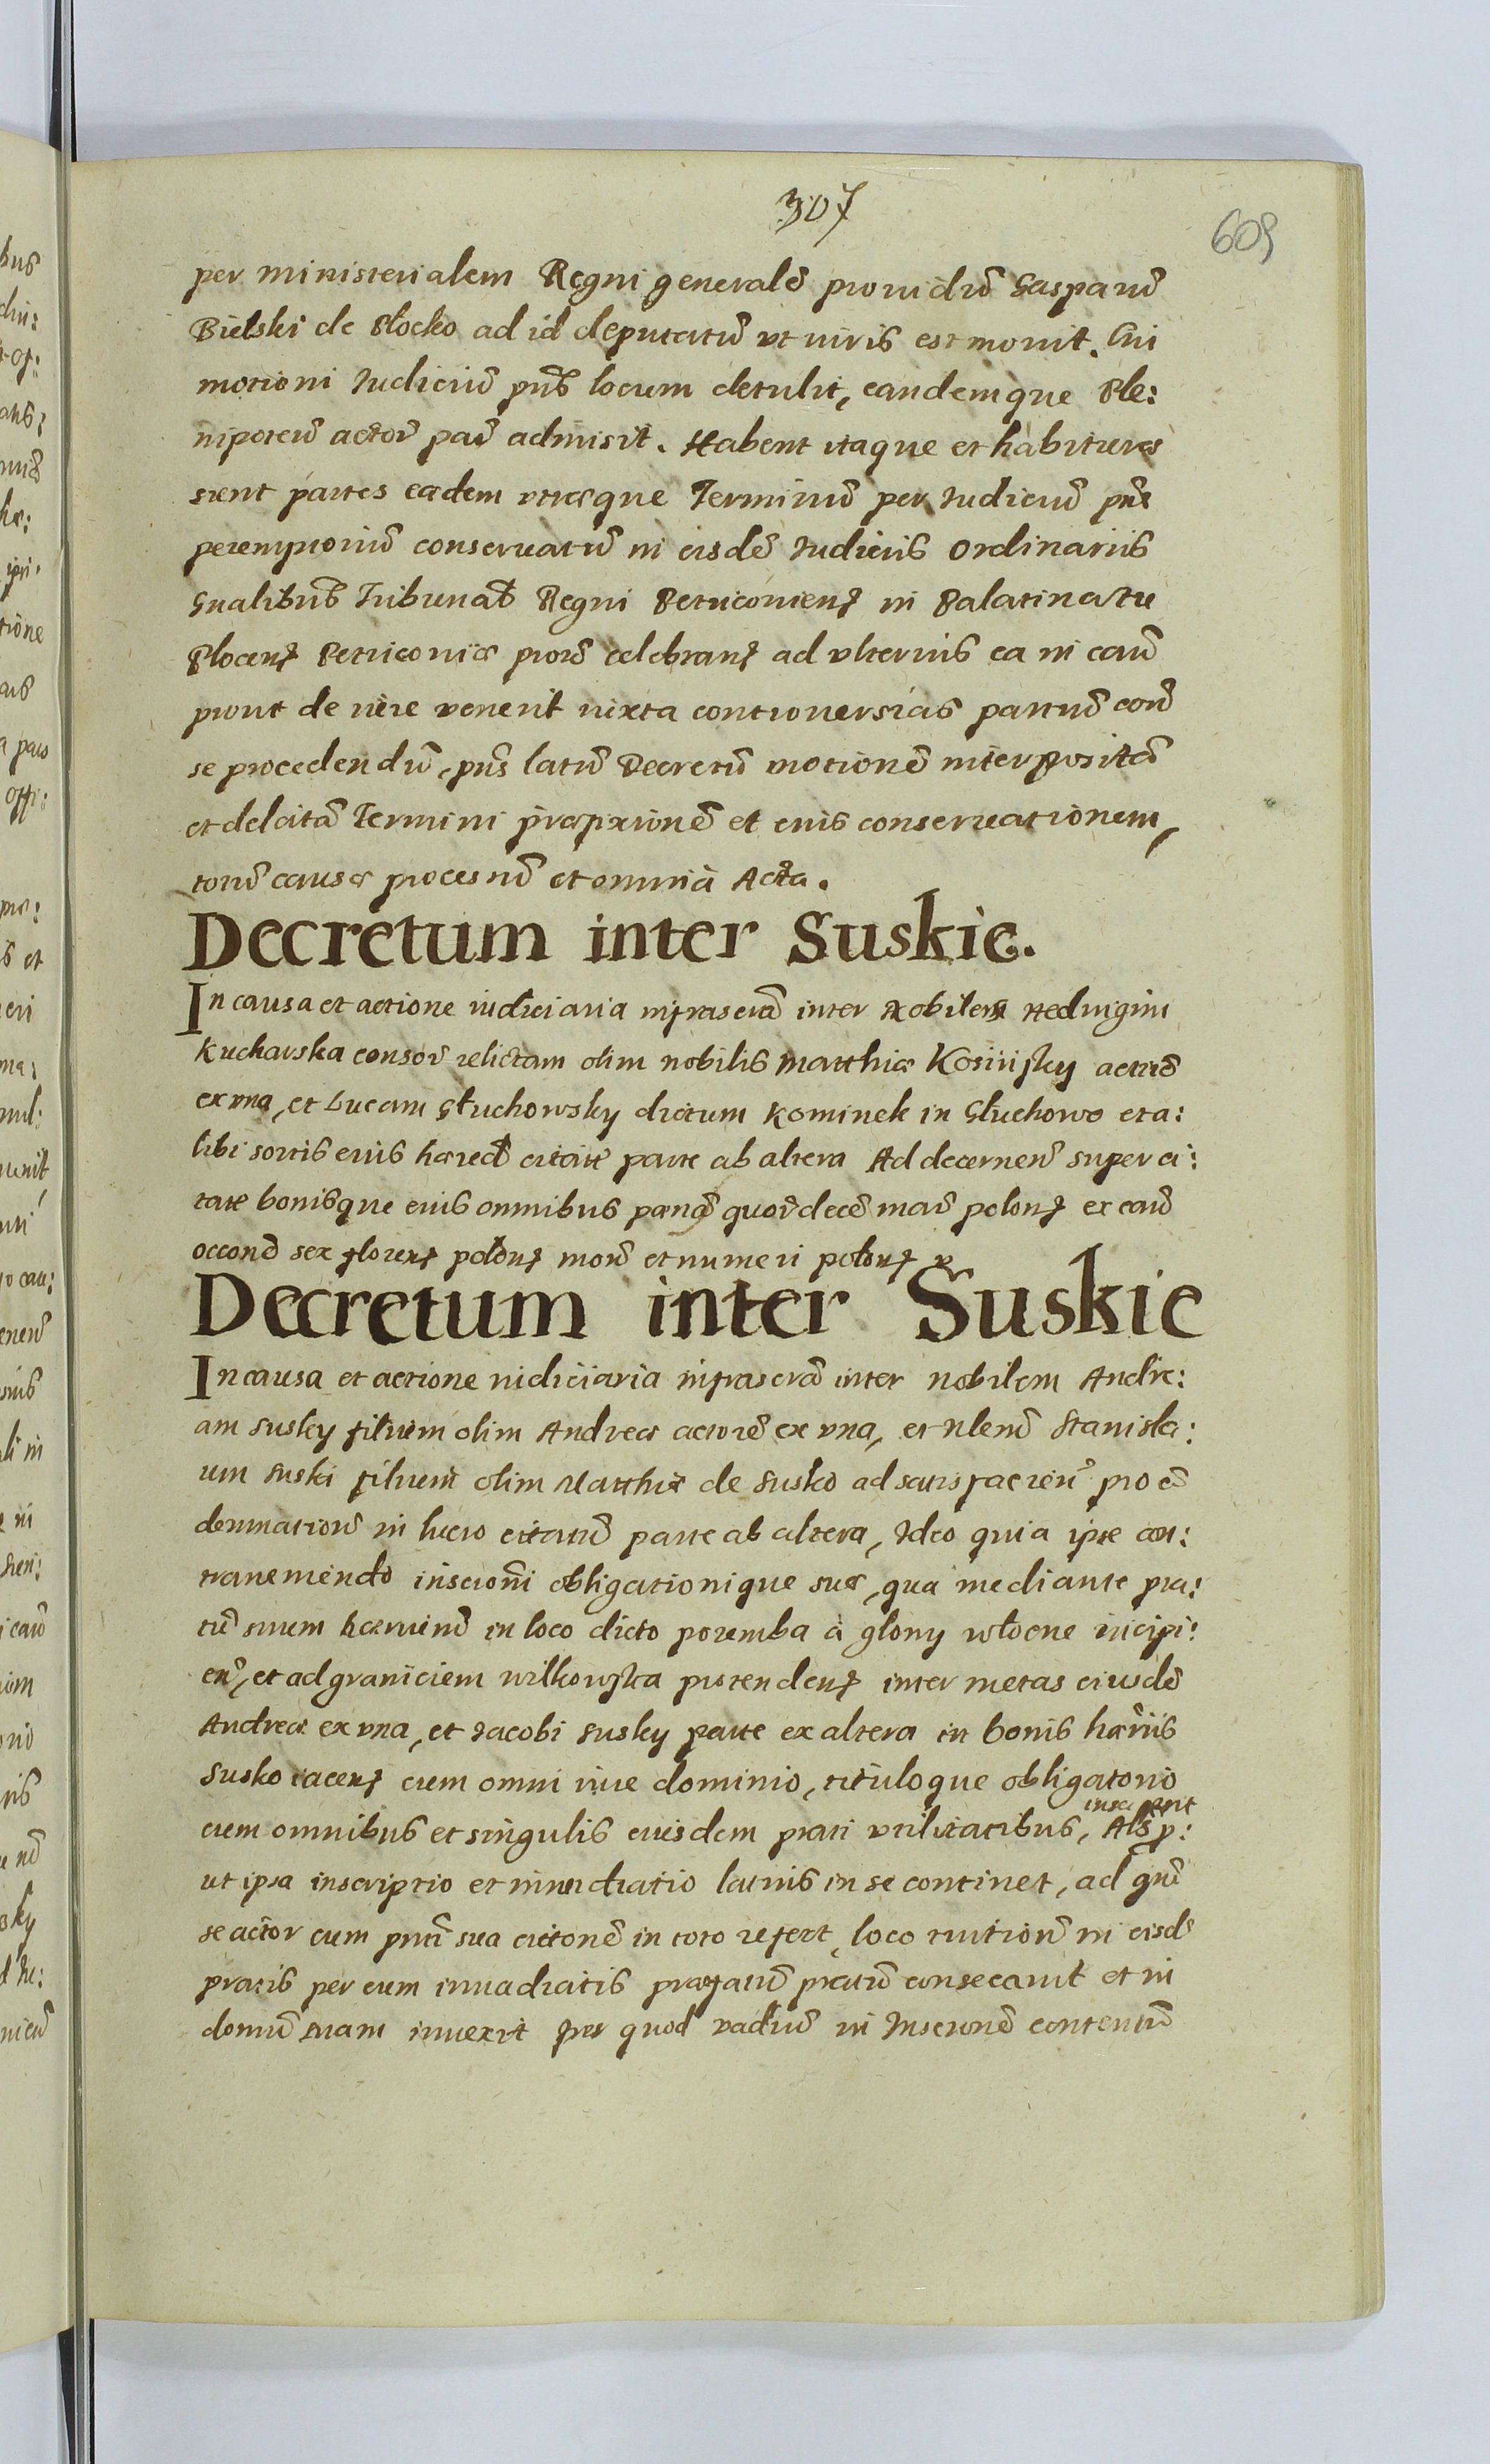 307
609
per ministerialem Regni generalē prouidū Gasparū
Bielski de Płocko ad id deputatū ut iuris est mouit. Cui
motioni Iudiciū pn̄s locum detulit, eandemque Ple:
nipoten̄ actor̄ par̄ admisit. Habent itaque et habituræ
sient partes eædem utræque Terminū per Iudiciū pn̄s
peremptoriū conseruatū in eisdē Iudicijs Ordinarijs
Gnalibus̄ Tribunal̄ Regni Petricouien̄ in Palatinatu
Plocen̄ Petricouiæ prox̄ celebran̄ ad ulterius ea in cau̅
prout de iure uenerit iuxta controuersias partiū cor̄
se procedendū, pn̄s latū Decretū motionē interpositā
et delatā Termini præfixionē et eius conseruationem,
totū causæ processū et omnia Acta.
Decretum inter Suskie.
In causa et actione iudiciaria infrascr̄ā inter Nobilem Heduigim
Kucharska consor̄ relictam olim nobilis Matthiæ Kosiński actricē
ex vna, et Lucam Głuchowsky dictum Kominek in Głuchowo et a:
libi sortis eius hæred̄ citatū parte ab altera Ad decernen̄ super ci:
tate bonisque eius omnibus pœnā quor̄ decē mar̄ polon̄ ex cau̅
occon̄e sex floren̄ polon̄ mon̄ et numeri polon̄
Decretum inter Suskie
In causa et actione iudiciaria infrascr̄ā inter nobilem Andre:
am Susky filium olim Andreæ actorē ex vna, et Nlem̄ Stanisla:
um Suski filium olim Matthiæ de Susko ad satisfacien̄ pro cō
demnation̄ in lucro citatū parte ab altera, Ideo quia ipse con:
traueniendo inscr̄oni obligationique suæ, qua mediante pra:
tū suum in loco dicto poremba à glony włocne incipi:
en̄, et ad graniciem wilkowska protenden̄ inter metas eiusdē
Andreæ ex vna, et Iacobi Susky parte ex altera in bonis hær̄ijs
Susko iacen̄ cum omni iure dominio, tituloque obligatorio
inscripsit
cum omnibus et singulis eiusdem prati utilitatibus, Als p:
ut ipsa inscriptio et inuadiatio latius in se continet, ad quā
se actor cum pn̄ti sua cit̄onē in toto refert, loco tuition̄ in eisd̄
pratis per eum inuadiatis præfatū pratū consecauit et in
domū suam inuexit per quod vadiū in Inscr̄onē contentū